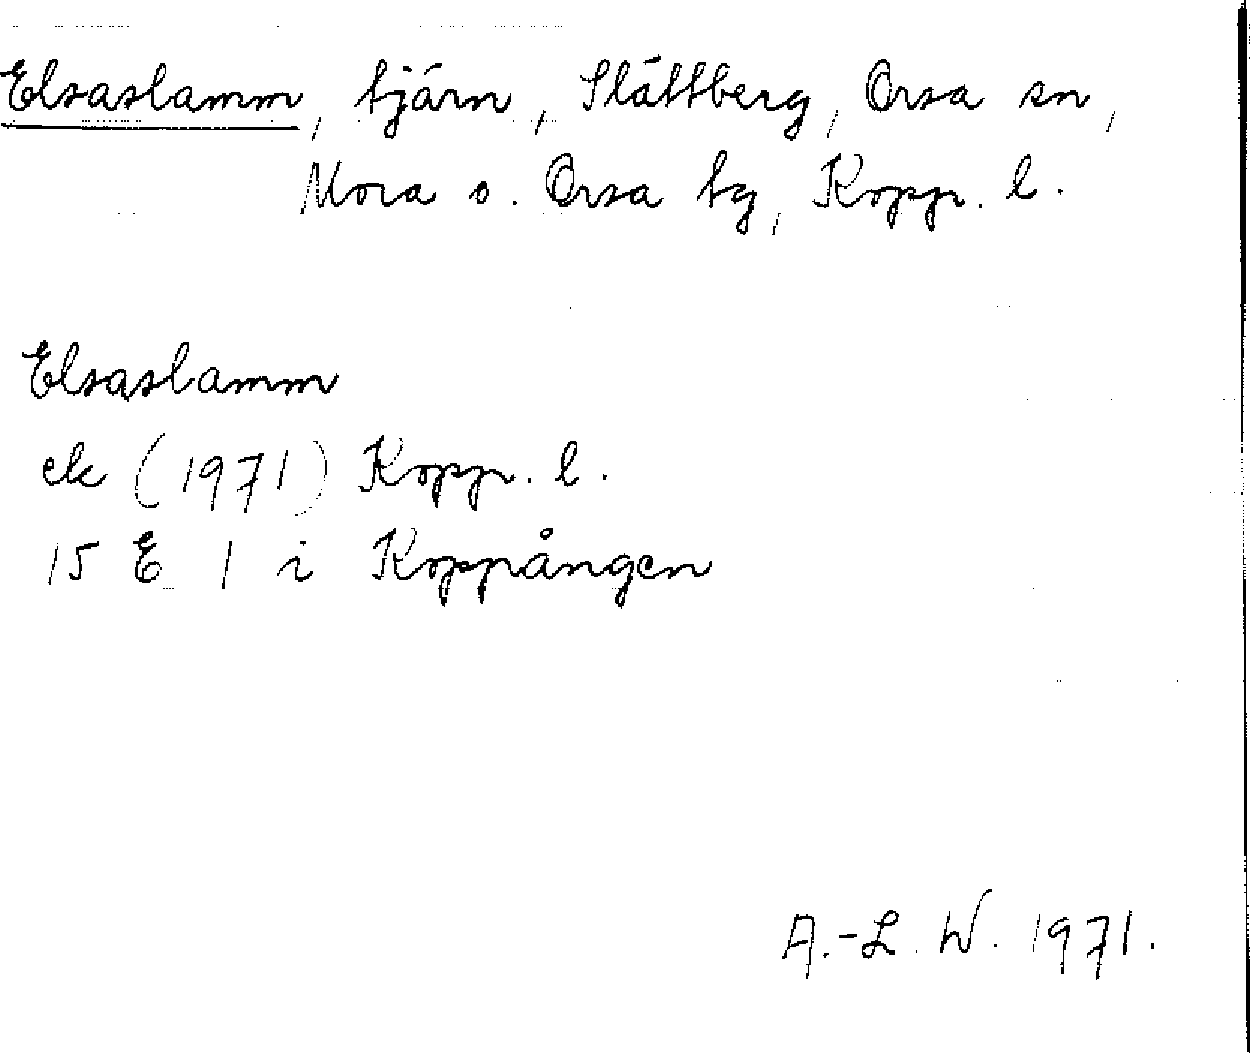 Elsaslamm, tjärn, Slättberg, Orsa sn,
Mora o. Orsa tg, Kopp. l.
Elsaslamm
ek (1971) Kopp. l.
15 E 1 i Koppången
A.-L. W. 1971.